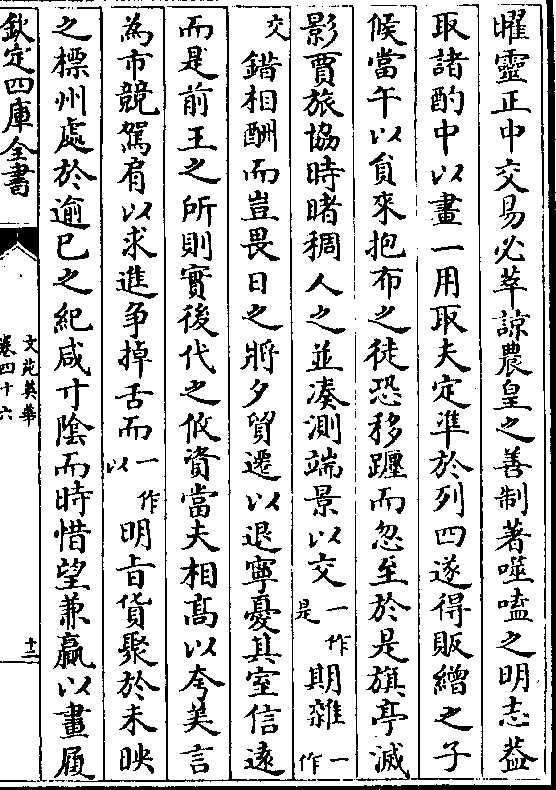 曜靈正中交易必萃諒農皇之善制著噬嗑之明志葢
取諸酌中以晝一用取夫定準於列四遂得販繒之子
候當午以貟來抱布之徒恐移躔而忽至於是旗亭滅
影賈旅協時睹稠人之並凑測端景以交一作是期雜一作
交錯相酬而豈畏日之將夕貿遷以退寧憂其室信遠
而是前王之所則實後代之攸資當夫相髙以夸美言
為市競駕肩以求進爭掉舌而一作以明旨貨聚於未映
之標州處於逾巳之紀咸寸陰而時惜望兼贏以晝履
欽定四庫全書
文苑英華
卷四十六
十二